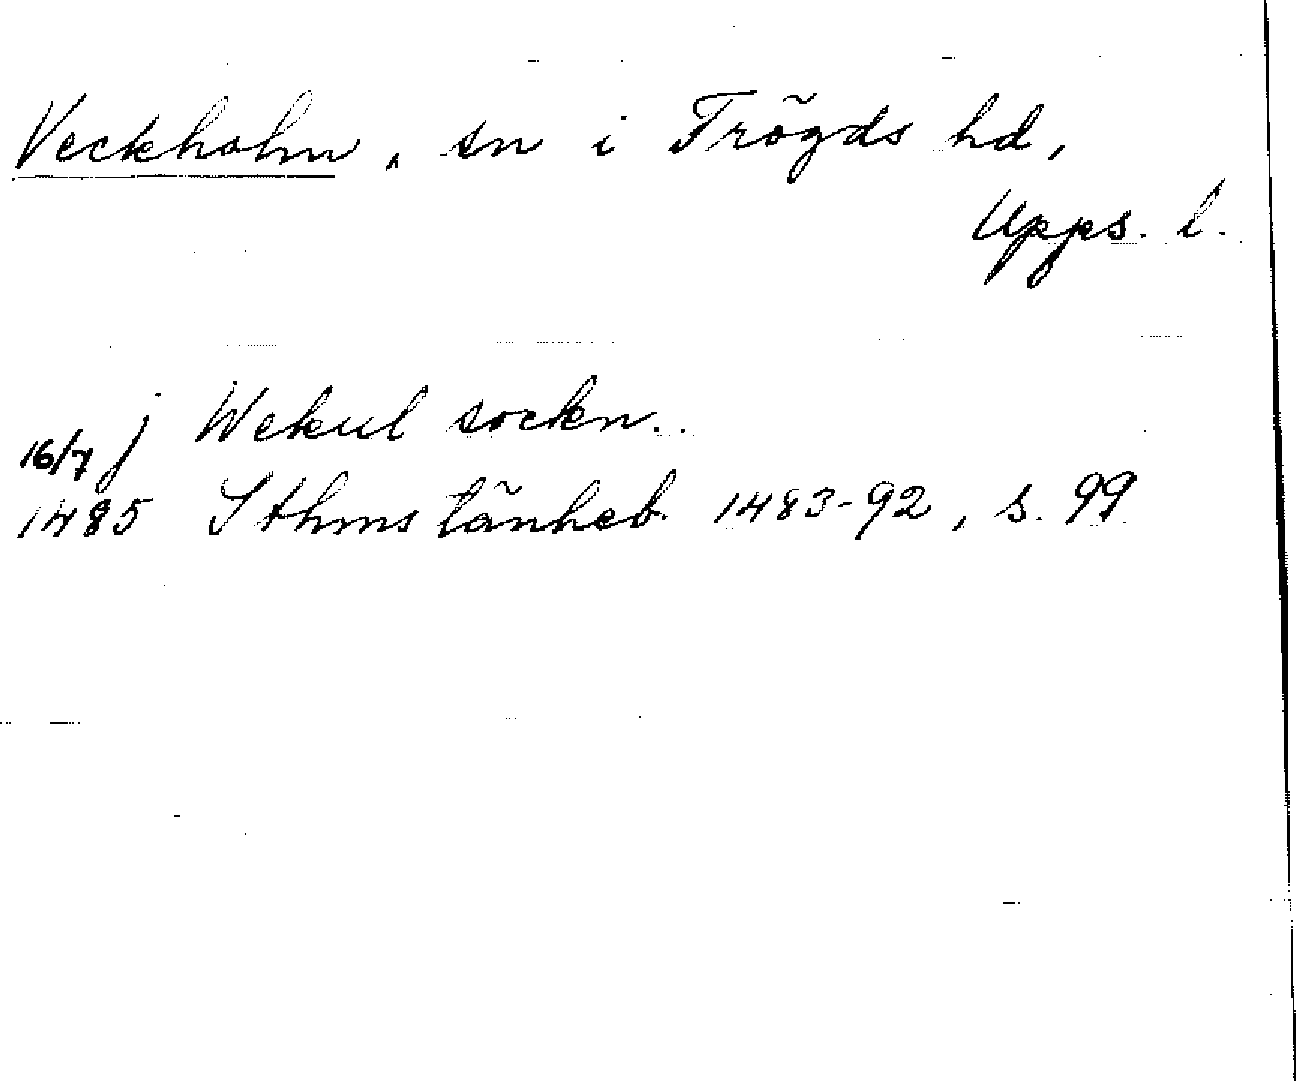 Veckholm, sn i Trögds hd,
Upps. l.
16/7 j Wekul sockn..
1485 Sthms tänkeb. 1483-92, s. 99